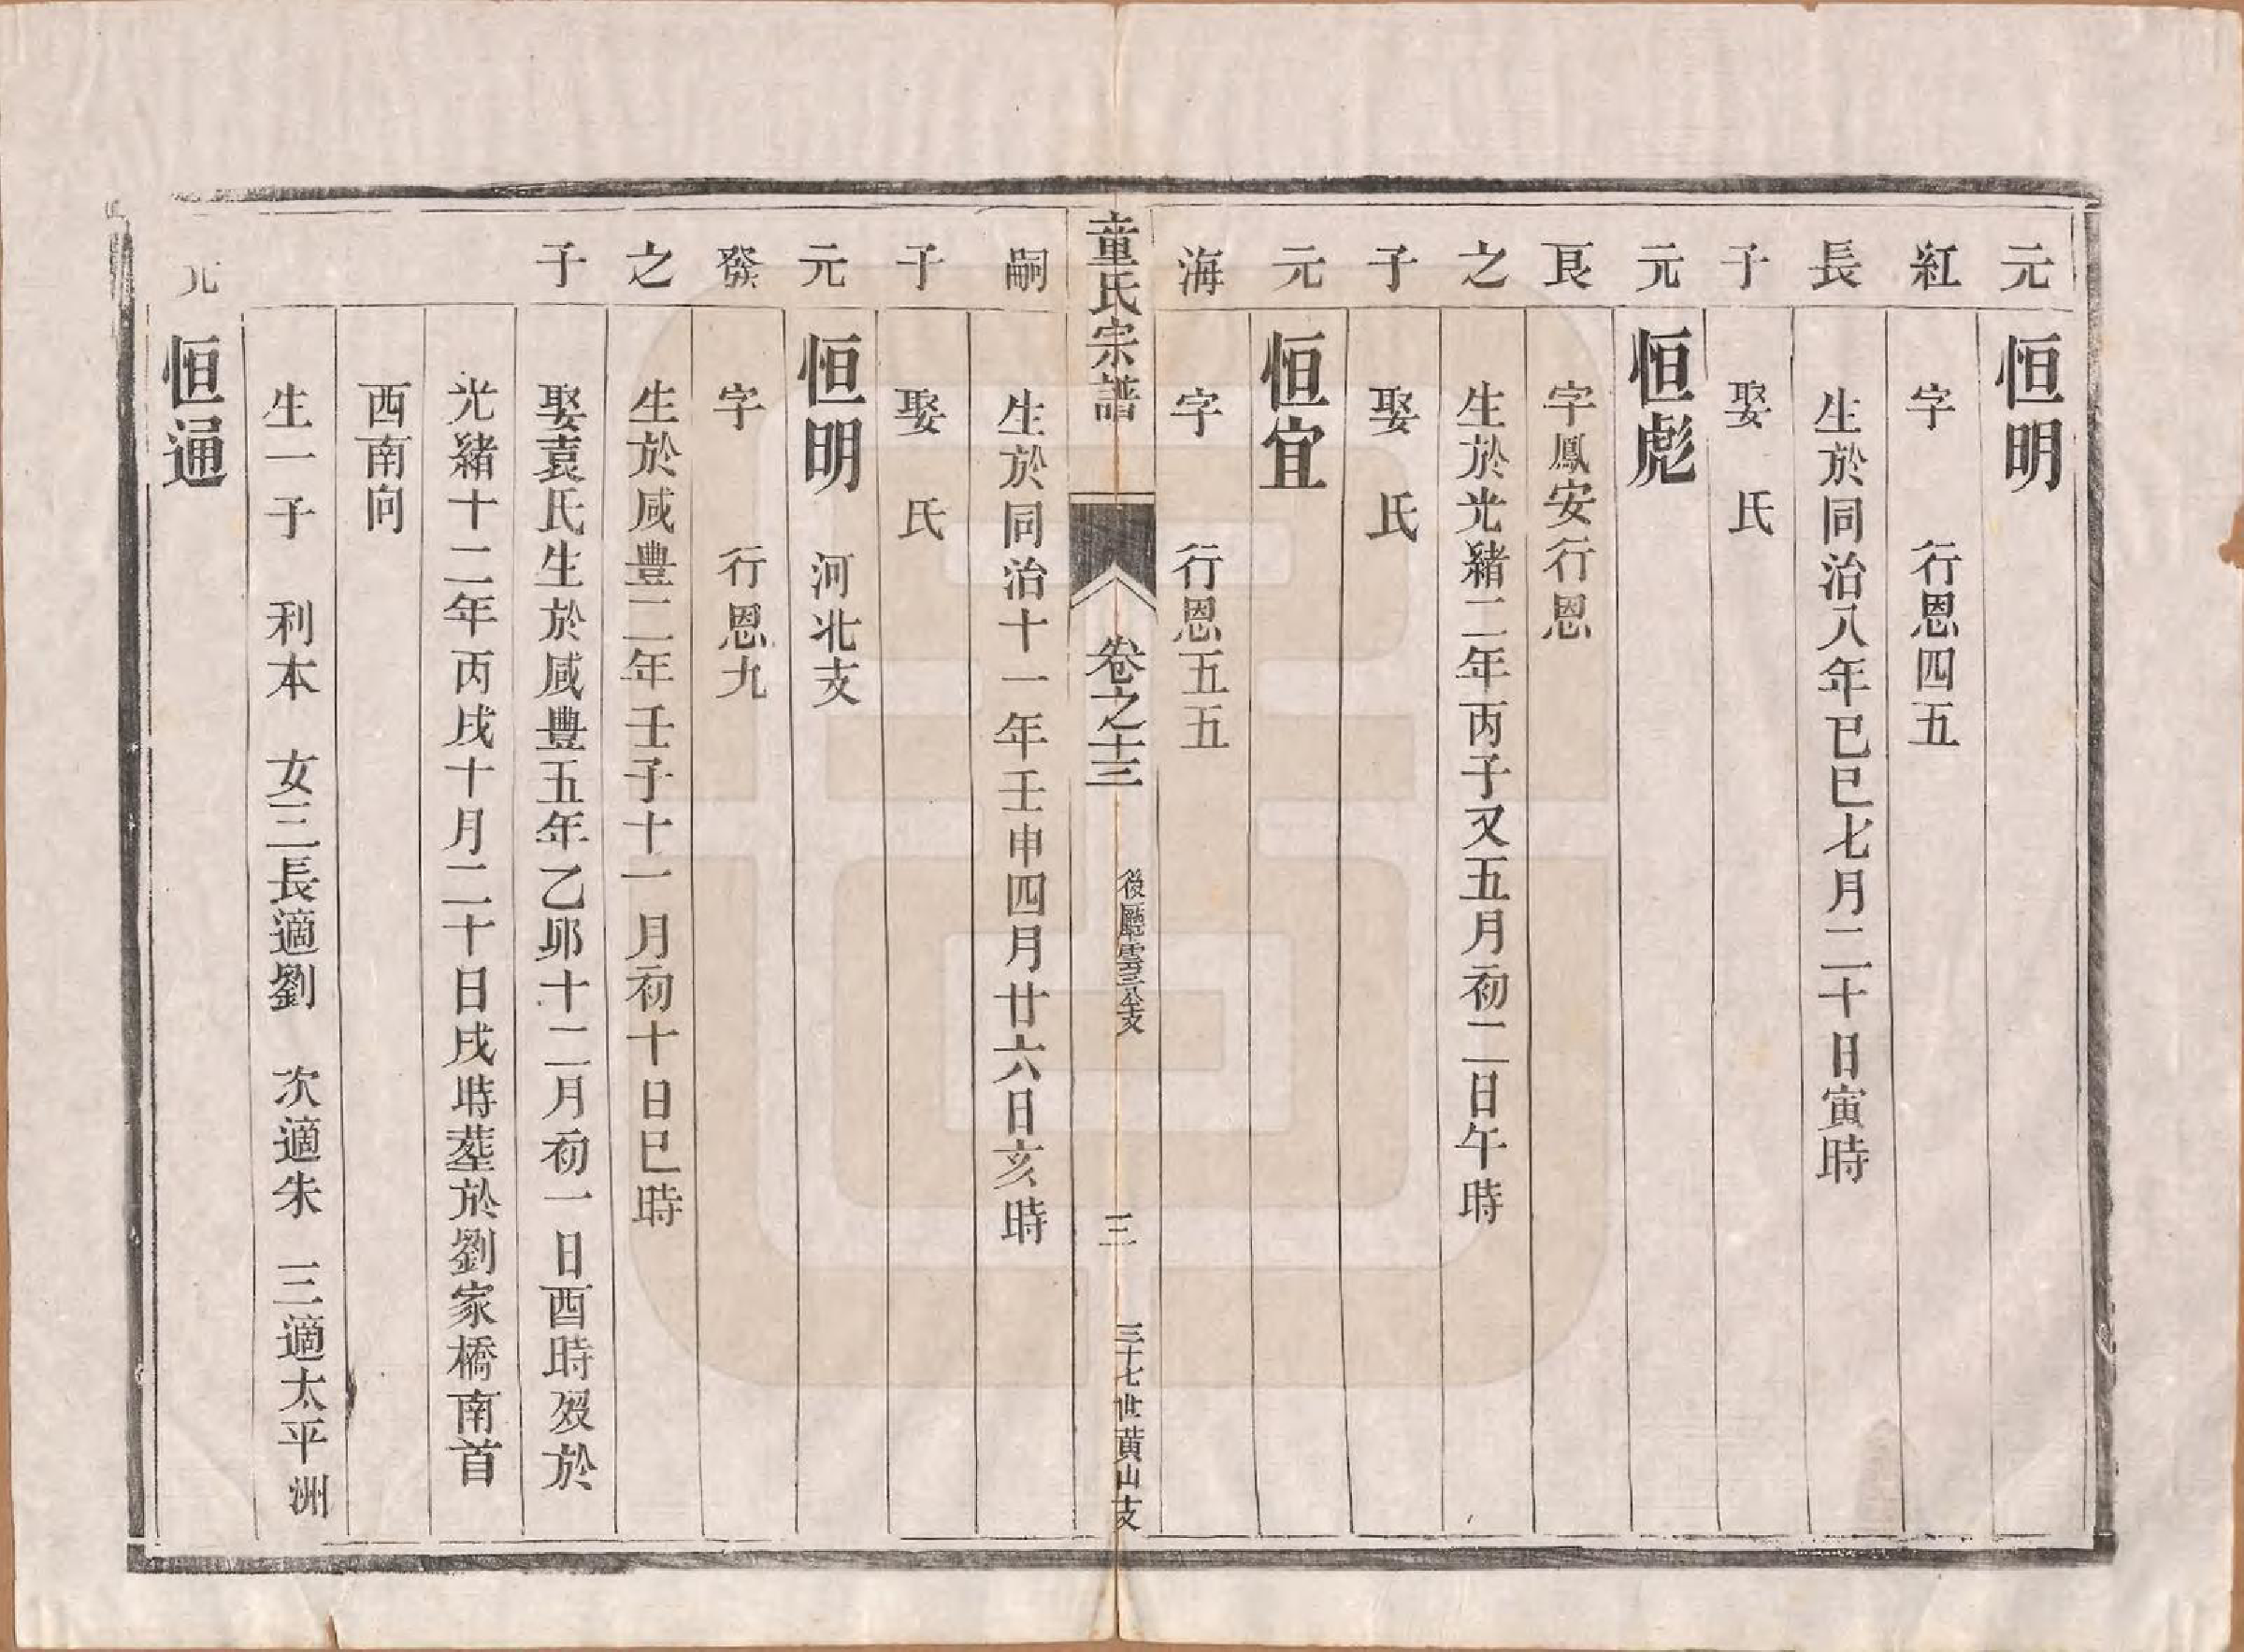 元 恒明
紅 字 行恩四五
長 生於同治八年已巳七月二十日寅時
子 娶 氏
元 恒彪
艮 字鳳安行恩
之 生於光緒二年丙子又五月初二日午時
子 娶 氏
元 恒宜
海 字 行恩五五
童氏宗譜 卷之十三 後廳雲三公支 三 三十七世黃山支
嗣 生於同治十一年壬申四月廿六日亥時
子 娶 氏
元 恒明 河北支
發 字 行恩九
之 生於咸豐二年壬子十一月初十日巳時
子 娶袁氏生於咸豐五年乙卯十二月初一日酉時歿於
光緒十二年丙戌十月二十日戌時塟於劉家橋南首
西南向
生一子 利本 女三長適劉 次適朱 三適太平洲
元 恒通